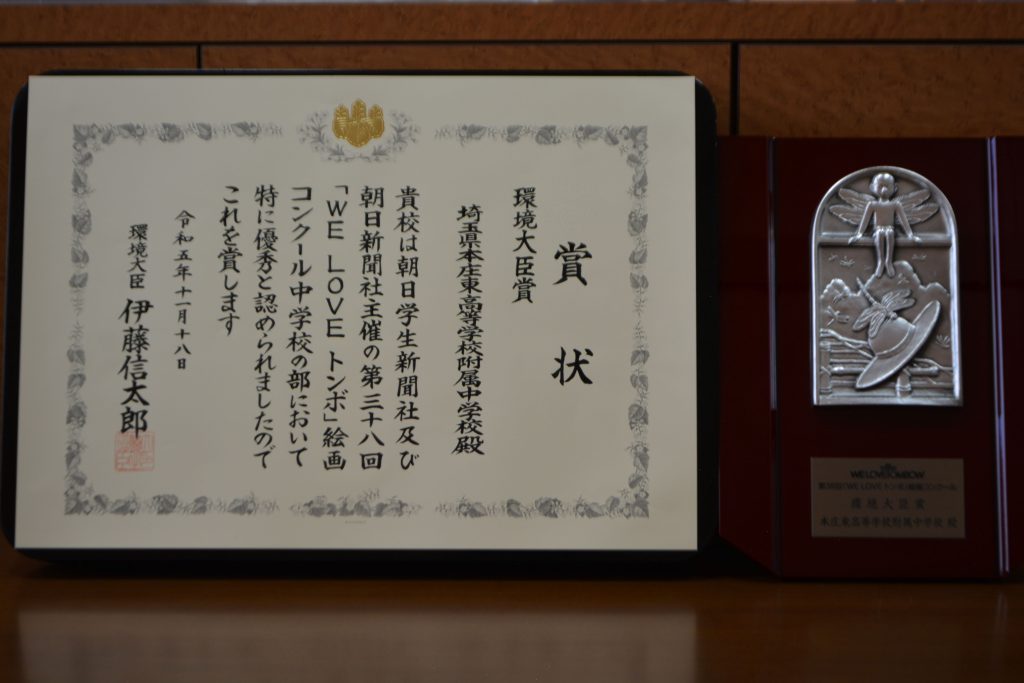 賞状
環境大臣賞
埼玉県本庄東高等学校附属中学校殿
貴校は朝日学生新聞社及び
朝日新聞社主催の第三十八回
「WE LOVE トンボ」絵画
コンクール中学校の部において
特に優秀と認められましたので
これを賞します
令和五年十一月十八日
環境大臣 伊藤信太郎
WE LOVE TOMBOW
第38回「WE LOVE トンボ」絵画コンクール
環境大臣賞
本庄東高等学校附属中学校 殿